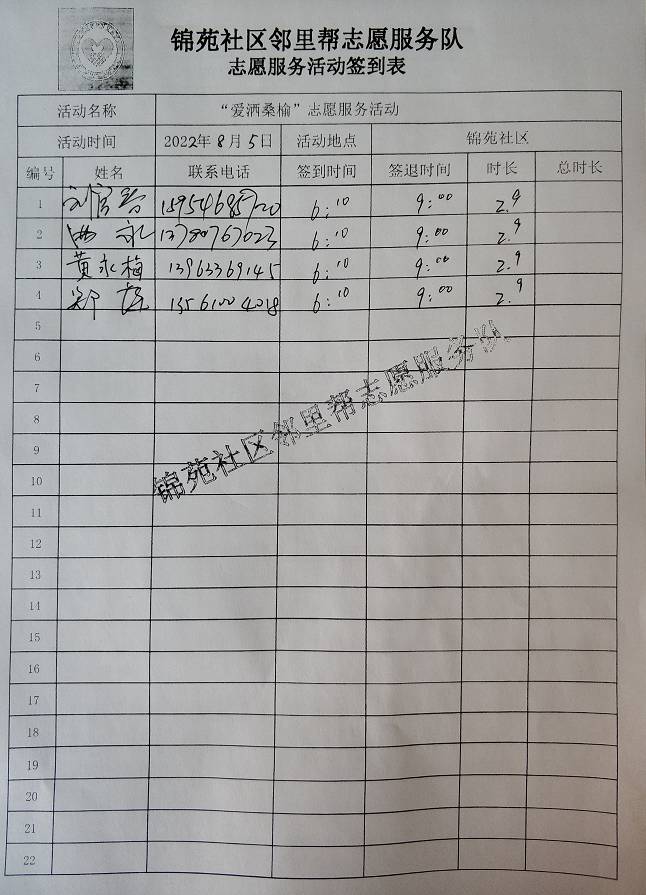 锦苑社区邻里帮志愿服务队
志愿服务活动签到表
活动名称 “爱洒桑榆”志愿服务活动
活动时间 2022年8月5日 活动地点 锦苑社区
编号 姓名 联系电话 签到时间 签退时间 时长 总时长
1 6:10 9:00 2.9
2 6:10 9:00 2.9
3 黄永梅 13963369145 6:10 9:00 2.9
4 13561004018 6:10 9:00 2.9
5
6
7
8
9
10
11
12
13
14
15
16
17
18
19
20
21
22
锦苑社区邻里帮志愿服务队